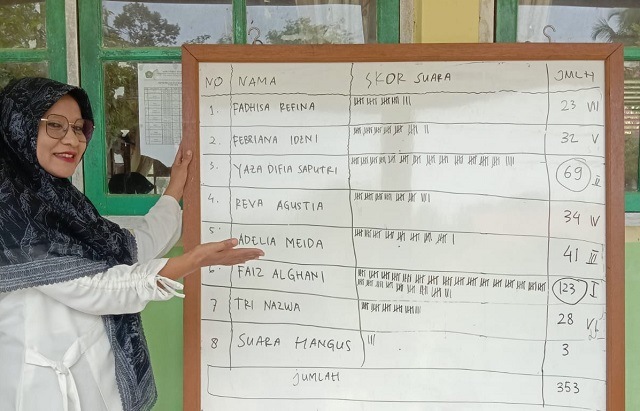 NO NAMA SKOR SUARA JMLH
1. FADHISA REFINA 23 VII
2. FEBRIANA IDZNI 32 V
3. YAZA DIFIA SAPUTRI 69 II
4. REVA AGUSTIA 34 IV
5. ADELIA MEIDA 41 III
6. FAIZ ALGHANI 123 I
7 TRI NAZWA 28 VI
8 SUARA HANGUS 3
JUMLAH 353